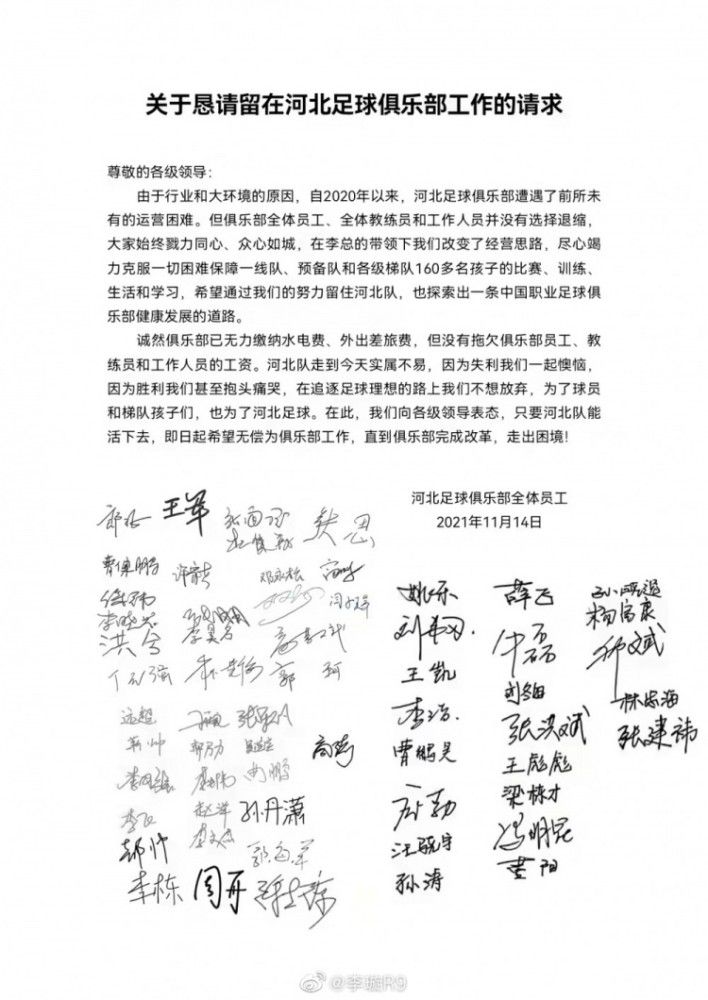 关于恳请留在河北足球俱乐部工作的请求
尊敬的各级领导：
由于行业和大环境的原因，自2020年以来，河北足球俱乐部遭遇了前所未
有的运营困难。但俱乐部全体员工、全体教练员和工作人员并没有选择退缩，
大家始终戮力同心、众心如城，在李总的带领下我们改变了经营思路，尽心竭
力克服一切困难保障一线队、预备队和各级梯队160多名孩子的比赛、训练、
生活和学习，希望通过我们的努力留住河北队，也探索出一条中国职业足球俱
乐部健康发展的道路。
诚然俱乐部已无力缴纳水电费、外出差旅费，但没有拖欠俱乐部员工、教
练员和工作人员的工资。河北队走到今天实属不易，因为失利我们一起懊恼，
因为胜利我们甚至抱头痛哭，在追逐足球理想的路上我们不想放弃，为了球员
和梯队孩子们，也为了河北足球。在此，我们向各级领导表态，只要河北队能
活下去，即日起希望无偿为俱乐部工作，直到俱乐部完成改革，走出困境！
河北足球俱乐部全体员工
2021年11月14日
王军
洪兮
郭珂
孙丹潇
郝帅
李栋 周冉
姚乐
王凯
李浩
曹鹏昊
孙涛
薛飞
牛磊
张洪斌
王彪彪
梁栋才
冯明昆
黄阳
杨富康
林忠海
张建祎
@李璇R9